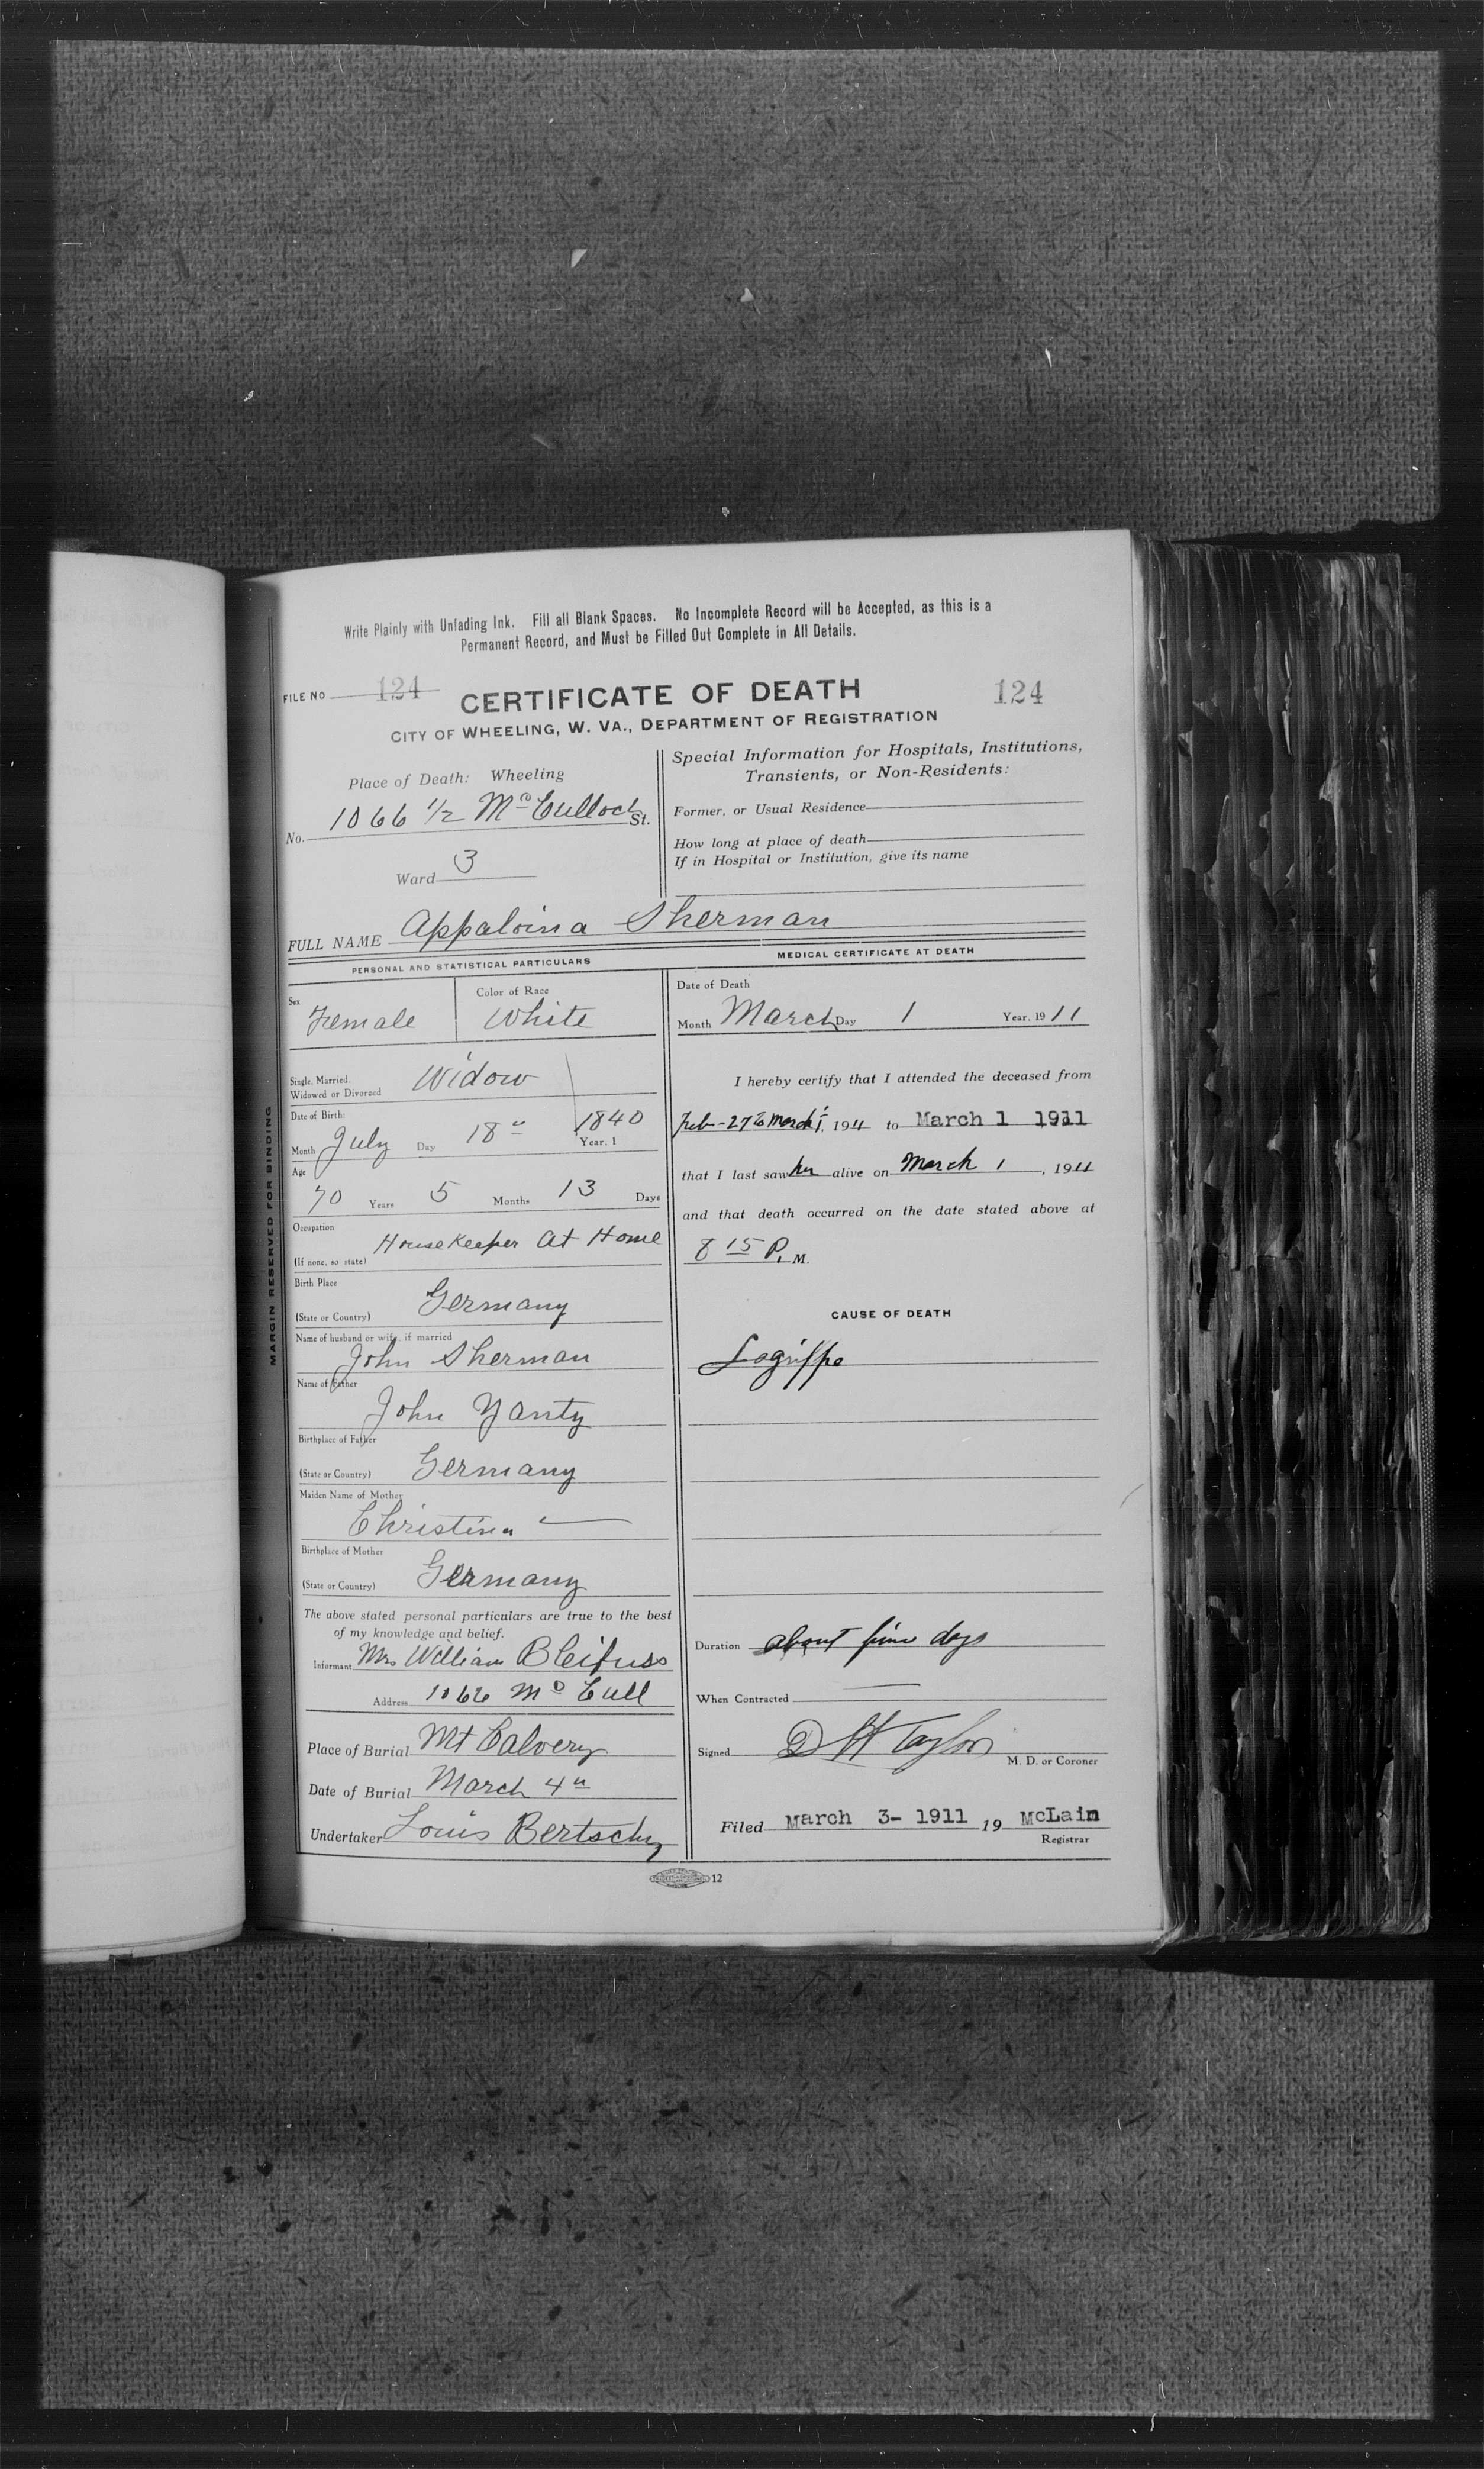 Write Plainly with Unfading Ink. Fill all Blank Spaces. No Incomplete Record will be Accepted, as this is a
Permanent Record, and Must be Filled Out Complete in All Details.
FILE NO 124
124
CERTIFICATE OF DEATH
CITY OF WHEELING, W. VA., DEPARTMENT OF REGISTRATION
Place of Death: Wheeling
No. 1066 1/2 McCulloch St.
Ward 3
Special Information for Hospitals, Institutions,
Transients, or Non-Residents:
Former, or Usual Residence
How long at place of death
If in Hospital or Institution, give its name
FULL NAME Appaloina Sherman
PERSONAL AND STATISTICAL PARTICULARS
Sex
Female
Color of Race
White
Single, Married,
Widowed or Divorced
Widow
Date of Birth:
Month July Day 18" 1840
Year, 1
Age
70 Years 5 Months 13 Days
Occupation
Housekeeper At Home
(If none, so state)
Birth Place
(State or Country) Germany
Name of husband or wife, if married
John Sherman
Name of Father
John Yanty
Birthplace of Father
(State or Country) Germany
Maiden Name of Mother
Christina —
Birthplace of Mother
(State or Country) Germany
The above stated personal particulars are true to the best
of my knowledge and belief.
Informant Mrs William Bleifuss
Address 1066 Mc Cull
Place of Burial Mt Calvery
Date of Burial March 4"
Undertaker Louis Bertschy
MEDICAL CERTIFICATE AT DEATH
Date of Death
Month March Day 1 Year, 1911
I hereby certify that I attended the deceased from
Feb-27 to March 1, 1911 to March 1 1911
that I last saw her alive on March 1, 1911
and that death occurred on the date stated above at
8 15 P. M.
CAUSE OF DEATH
Lagrippe
Duration about five days
When Contracted —
Signed D H Taylor
M. D. or Coroner
Filed March 3- 1911 19 McLain
Registrar
12
MARGIN RESERVED FOR BINDING